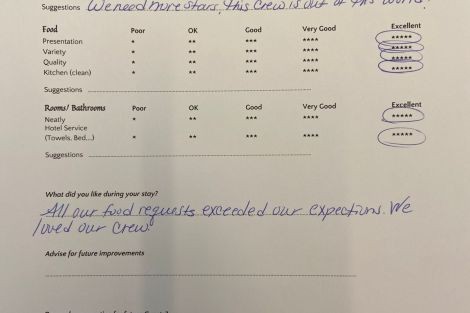 Suggestions We need more stars, this crew is out of this world!
Food Poor OK Good Very Good Excellent
Presentation * ** *** **** *****
Variety * ** *** **** *****
Quality * ** *** **** *****
Kitchen (clean) * ** *** **** *****
Suggestions
Rooms/ Bathrooms Poor OK Good Very Good Excellent
Neatly * ** *** **** *****
Hotel Service
(Towels, Bed...) * ** *** **** *****
Suggestions
What did you like during your stay?
All our food requests exceeded our expections. We
loved our crew
Advise for future improvements